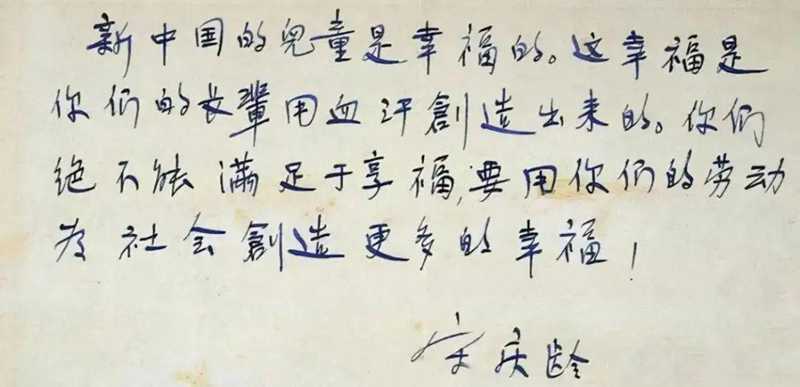 新中国的兒童是幸福的。这幸福是
你们的长輩用血汗創造出来的。你们
绝不能满足于享福,要用你们的劳动
为社会創造更多的幸福！
宋庆龄